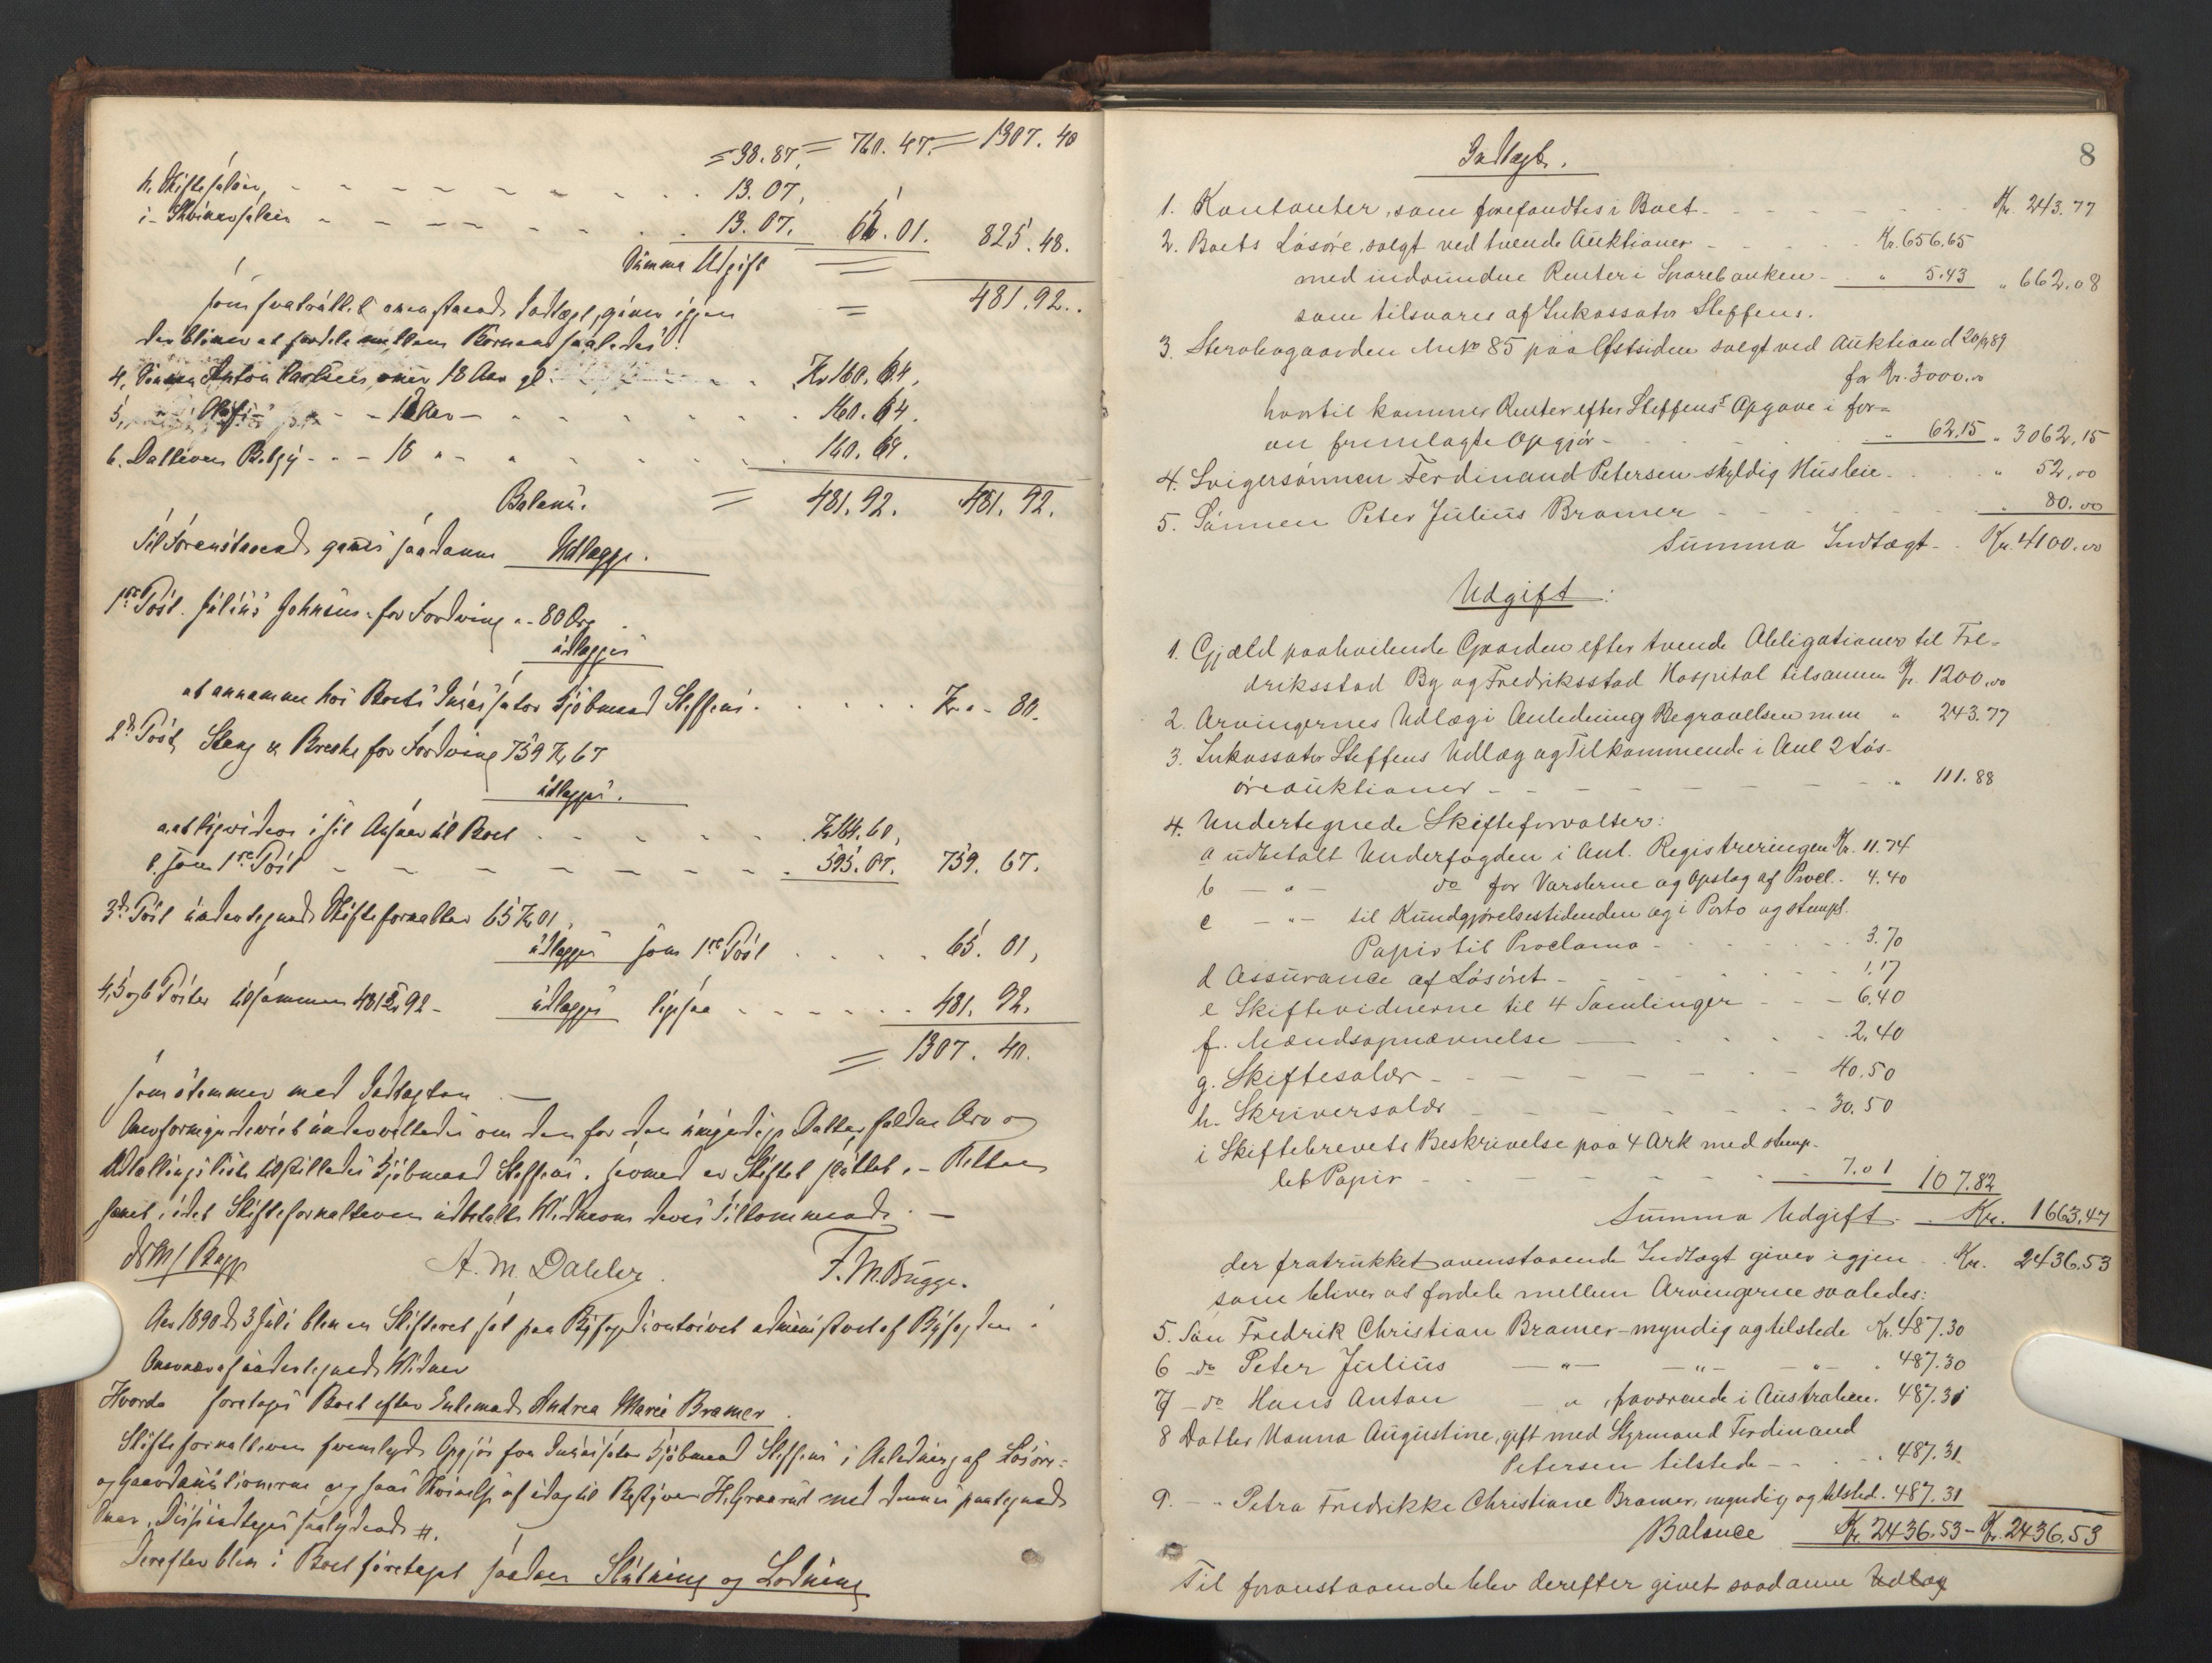 = 38.87. = 760.47. = 1307.40
h. Skiftesalair, 13.07.
i - Skriversalair 13.07. 65.01. 825.48.
Summa Udgift
som fratrukket ovenstaaende Indtægt, giver igjen = 481.92.
der bliver at fordele mellem Børnene saaledes:
4, Anton over 18 Aar gl. Kr 160.64.
5, 160.64.
6. Datteren - 18 " - 160.64.
Balance. = 481.92. 481.92.
Til Forenstaaende gaves saadanne Udlægge.
1ste Post. Julius Johnsen for Fordring " - 80 Øre
udlægges
at annamme hos Boets Inkassator Kjøbmand Steffens. Kr. " - 80.
2d Post, Stang & for Fordring 759 Kr 67
udlægges.
a. at liqvidere i sit Ansvar til Boet Kr 164.60,
b. som 1ste Post 595.07. 759.67.
3d Post undertegnede Skifteforvalter 65 Kr 01,
udlægges som 1ste Post 65.01,
4, 5 og 6 Poster tilsammen 481 Kr 92 - udlægges ligesaa 481.92.
= 1307.40.
som stemmer med Indtægten. —
Overformynderiet underrettedes om den for den umyndige Datter faldne Arv og
Udlodningsliste tilstilledes Kjøbmand Steffens. Hermed er Skiftet sluttet. - Retten
hævet, idet Skifteforvalteren udbetalte Vidnerne deres Tilkommende. —
A. M. Dahler. F. M. Bugge.
Aar 1890 d. 3 Juli blev en Skifteret sat paa Byfogedkontoiret administreret af Byfogden i
Overvær af undertegnede Vidner
Hvorda foretoges Boet efter Enkemad. Andrea Marie Bramer.
Skifteforvalteren fremlagde Opgjør fra Inkassator Kjøbmand Steffens i Anledning af Løsøre=
og Gaardauktionerne og saas Skrivelse af idag til Bestyrer H. Graarud med dennes paategnede
Svar. Disse indtages saalydende #.
Derefter blev i Boet foretaget saadan Slutning og Lodning
8
Indtægt.
1. Kontanter, som forefandtes i Boet Kr. 243.77
2. Boets Løsøre, solgt ved tvende Auktioner Kr. 656.65
med indvundne Renter i Sparebanken " 5.43 " 662.08
som tilsvares af Inkassator Steffens.
3. Sterobogaarden Mr No 85 paa Østsiden solgt ved Auktion d 20/9 89
for Kr. 3000.00
hvortil kommer Renter efter Steffens's Opgave i for=
an fremlagte Opgjør - " 62.15 " 3062.15
4. Svigersønnen Ferdinand Petersen skyldig Husleie " 52.00
5. Sønnen Peter Julius Bramer " 80.00
Summa Indtægt - Kr. 4100.00
Udgift:
1. Gjæld paahvilende Gaarden efter tvende Obligationer til Fre=
driksstad By og Fredriksstad Hospital tilsammen Kr. 1200.00
2. Arvingernes Udlæg i Anledning Begravelsen m m " 243.77
3. Inkassator Steffens Udlæg og Tilkommende i Anl 2 Løs-
øreauktioner " 111.88
4. Undertegnede Skifteforvalter:
a udbetalt Underfogden i Anl. Registreringen Kr. 11.74
b — " — do for Varslerne og Opslag af Procl. 4.40
c — " — til Kundgjørelsestidenden og i Porto og stempl.
Papir til Proclama 3.70
d Assurance af Løsøret 1.17
e Skiftevidnerne til 4 Samlinger 6.40
f. Mændsopnævnelse 2.40
g. Skiftesalær 40.50
h. Skriversalær 30.50
i Skiftebrevets Beskrivelse paa 4 Ark med stemp-
let Papir 7.01 107.82
Summa Udgift Kr. 1663.47
der fratrukket ovenstaaende Indtægt giver igjen Kr. 2436.53
som bliver at fordele mellem Arvingerne saaledes:
5. Søn Fredrik Christian Bramer - myndig og tilstede Kr. 487.30
6 do Peter Julius — " — — " — — " — " 487.30
7 - do Hans Anton — " fraværende i Australien. 487.31
8 Datter Hanna Augustine, gift med Styrmand Ferdinand
Petersen tilstede - " 487.31
9. - " Petra Fredrikke Christiane Bramer, myndig og tilsted. 487.31
Balance Kr. 2436.53 - Kr. 2436.53
Til foranstaaende blev derefter givet saadanne Udlæg